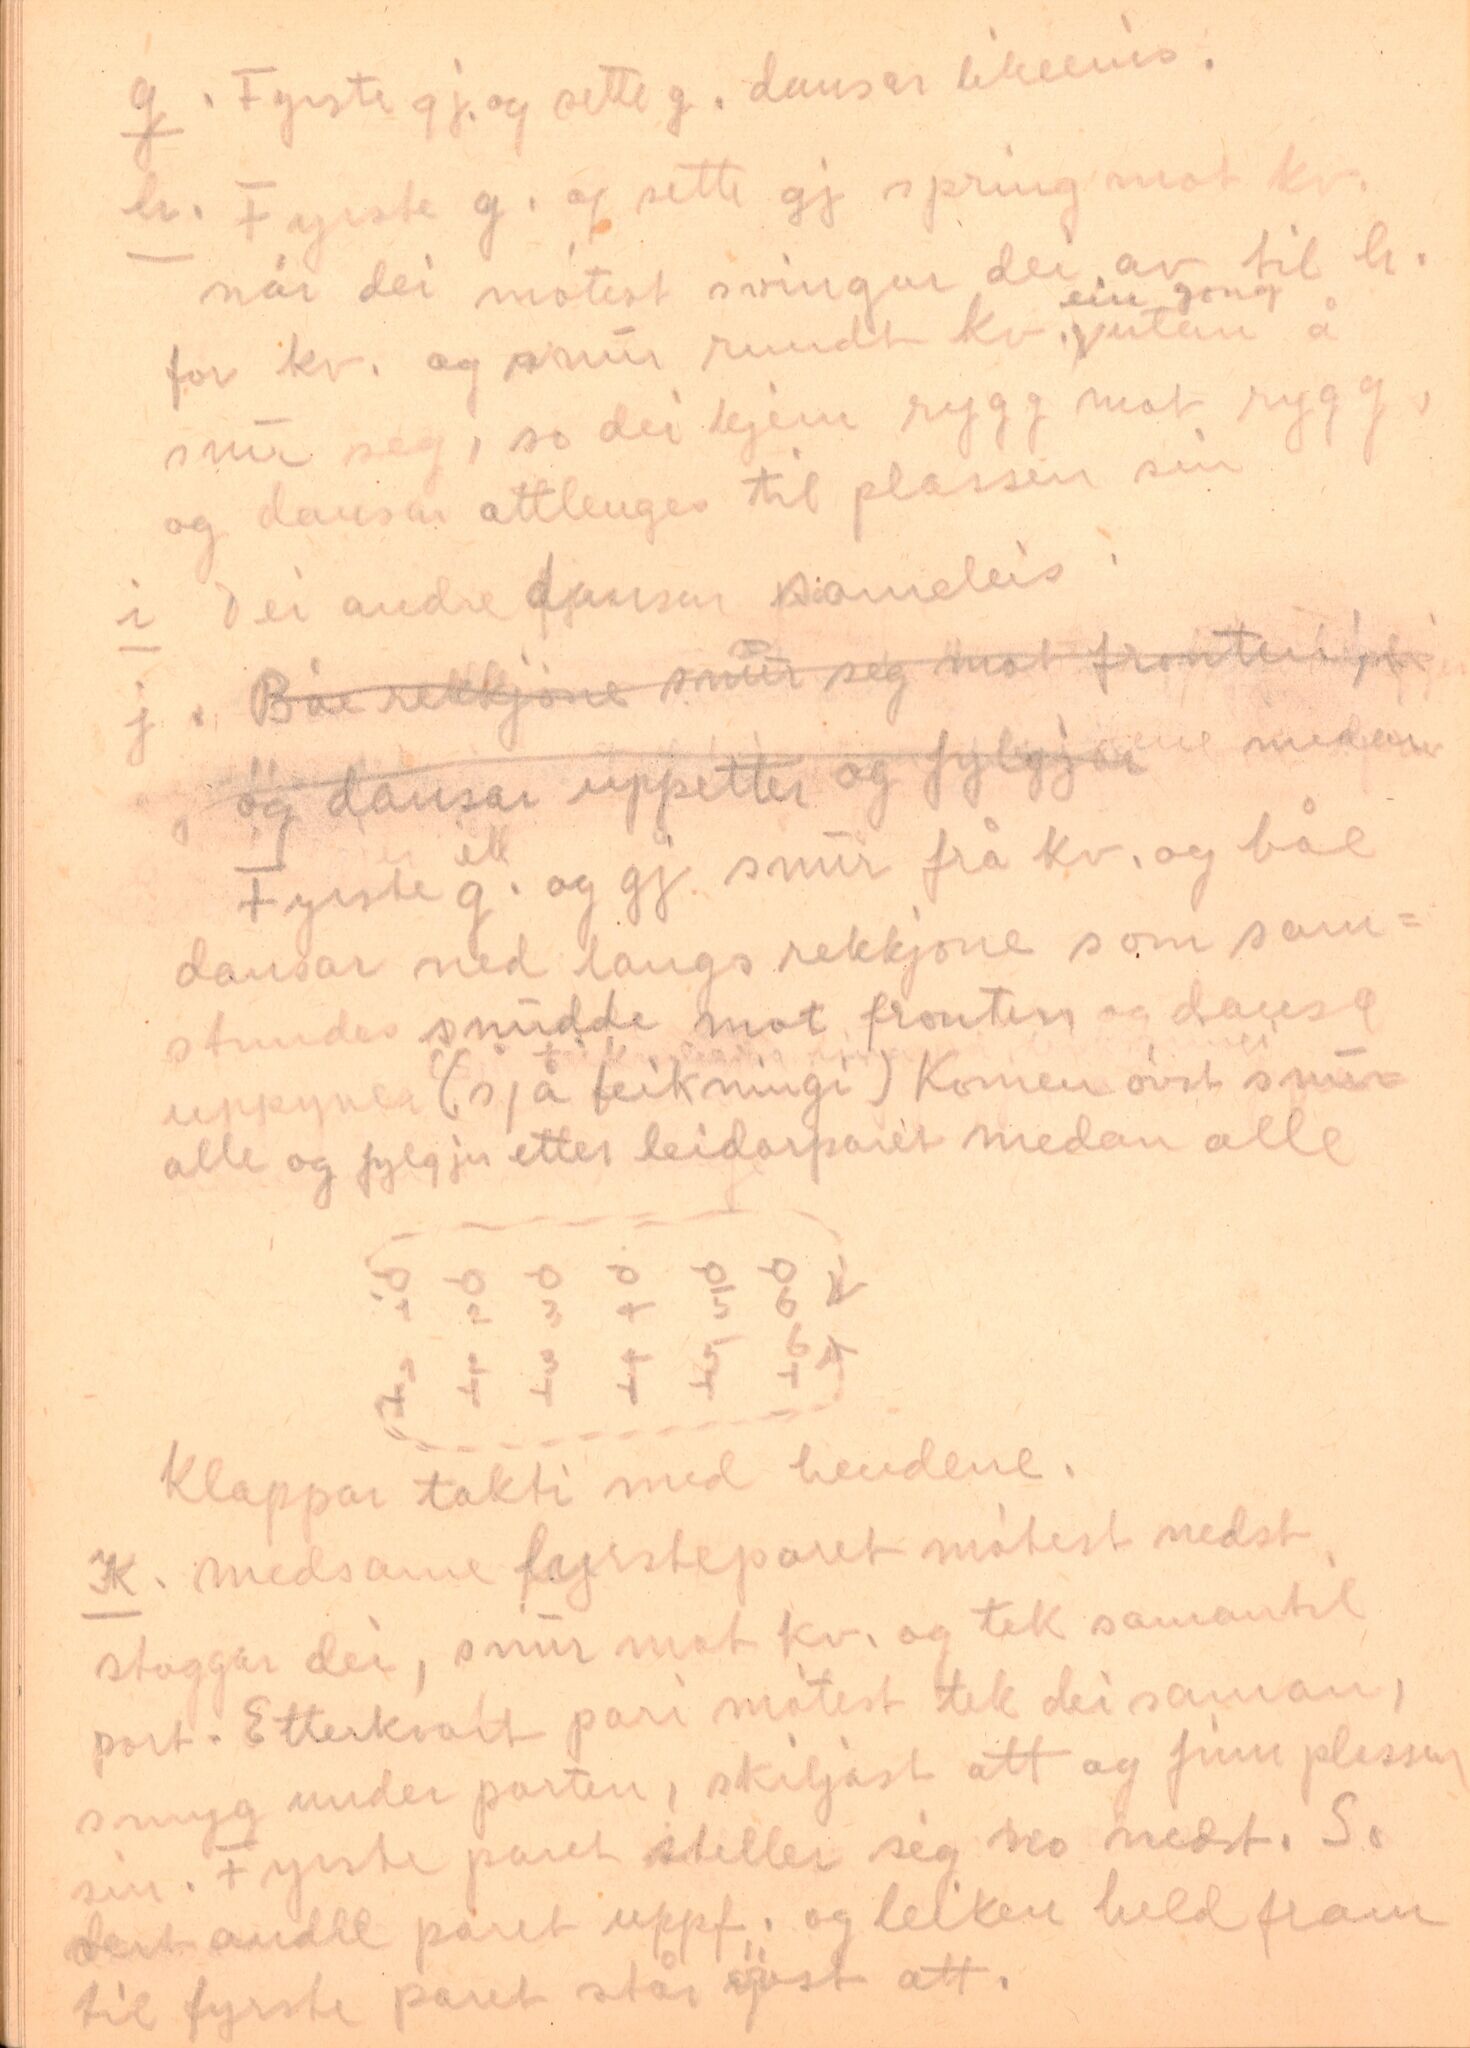 g. Fyrste gj. og sette g. dansar likeeins.
h. Fyrste g. og sette gj spring mot kv.
når dei møtest svingar dei av til h.
for kv. og snur rundt kv. ein gong utan å
snu seg, so dei kjem rygg mot rygg,
og dansar attlenges til plassen sin
i Dei andre dansar sameleis.
j. Båe rekkjone snur seg mot fronten
og dansar uppetter og fylgjar medan
Fyrste g. og gj. snur frå kv. og båe
dansar ned langs rekkjone som sam=
stundes snudde mot fronten og dansa
(sjå teikningi) Komen øvst snur
alle og fylgjer etter leidarparet medan alle
o o o o o o
1 2 3 4 5 6
1 2 3 4 5 6
+ + + + + +
Klappar takti med hendene.
K. Medsame fyrsteparet møtest nedst
stoggar dei, snur mot kv. og tek saman til
port. Etterkvart pari møtest tek dei saman,
smyg under porten, skiljast att og finn plassen
sin. Fyrste paret steller seg no nedst. S.
dert andre paret uppf. og leiken held fram
til fyrste paret står øvst att.